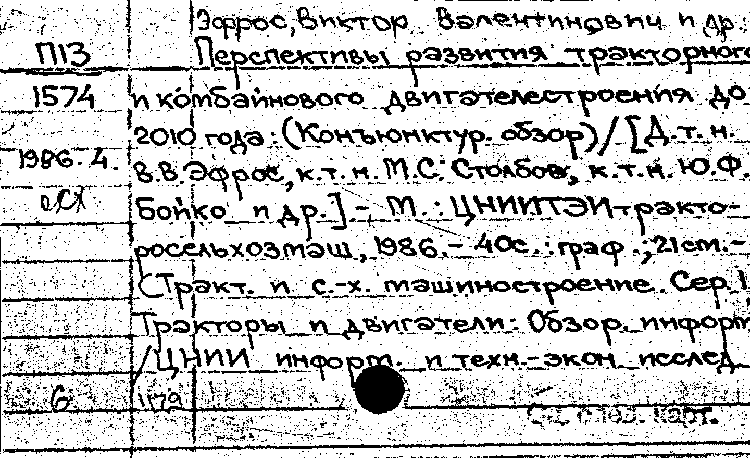 Эфрос, Виктор Валентинович и др.
П13
Перспективы развития тракторного
1574
и комбайнового двигателестроения до
2010 года: (Конъюнктур. обзор) / [Д.т.н.
1986.4.
В.В. Эфрос, к.т.н. М.С. Столбов, к.т.н. Ю.Ф.
Бойко и др.]. - М.: ЦНИИТЭИтракто-
росельхозмаш, 1986. - 40с.: граф.; 21см. -
(Тракт. и с.-х. машиностроение. Сер. 1
Тракторы и двигатели: Обзор. информ
/ЦНИИ информ. и техн.-экон. исслед.
6 1179
См. след. карт.